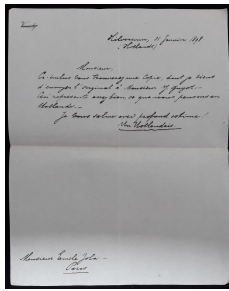 Hilversum, 21 Janvier 1898
(Hollande)
Monsieur,
Ci-inclus vous trouverez une Copie, dont je viens
d'envoyer l'original à Monsieur Y Guyot.—
Ceci représente assez bien, ce que nous pensons en
Hollande.—
Je vous salue avec profond estime!
Un Hollandais
Monsieur Emile Zola—
Paris